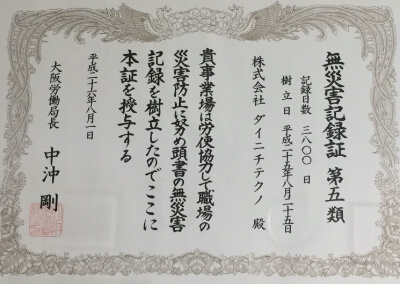 無災害記録証 第五類
記録日数 三八〇〇 日
樹立日 平成二十五年八月二十五日
株式会社 ダイニチテクノ 殿
貴事業場は労使協力して職場の
災害防止に努め頭書の無災害
記録を樹立したのでここに
本証を授与する
平成二十六年八月一日
大阪労働局長 中沖 剛